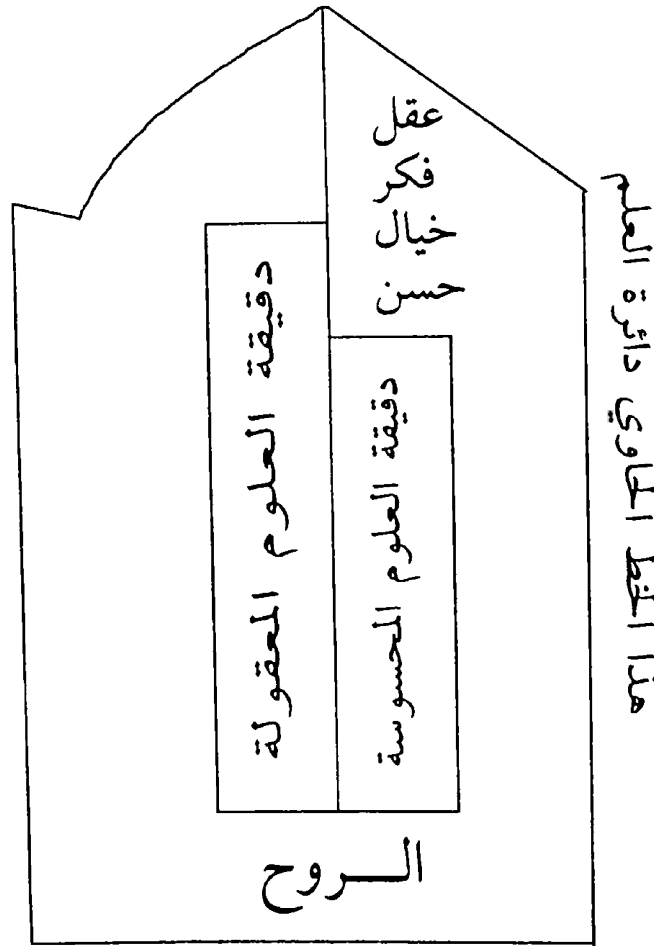 عقل
فكر
خيال
حسن
دقيقة العلوم المحسوسة
دقيقة العلوم المعقولة
الـــروح
هذا الخط الحاوي دائرة العلم